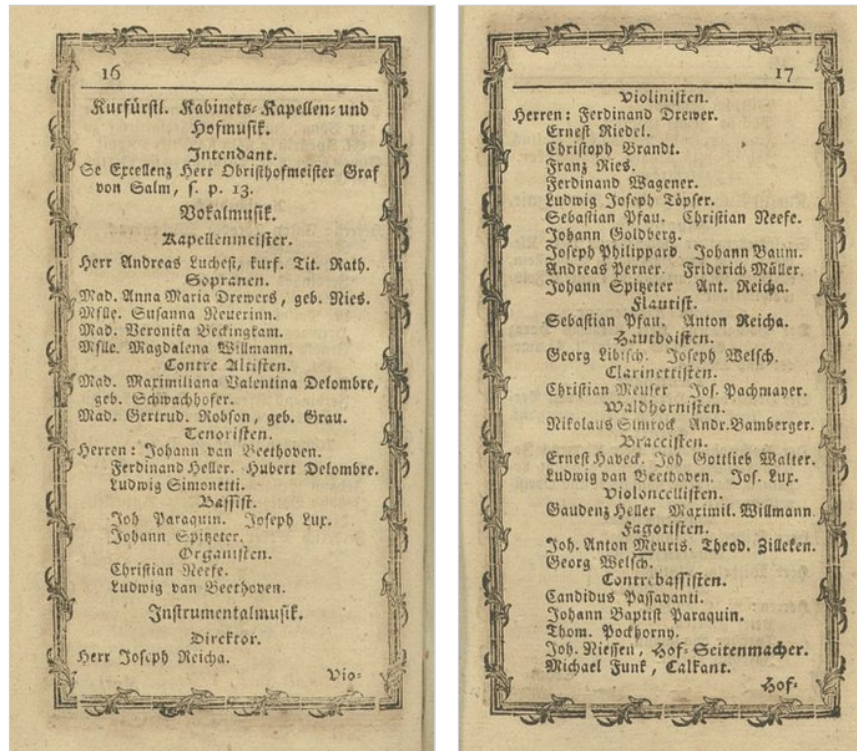 16
Kurfürstl. Kabinets-Kapellen- und
Hofmusik.
Intendant.
Se Excellenz Herr Obristhofmeister Graf
von Salm, s. p. 13.
Vokalmusik.
Kapellenmeister.
Herr Andreas Luchesi, kurf. Tit. Rath.
Sopranen.
Mad. Anna Maria Drewers, geb. Ries.
Mslle. Susanna Neuerinn.
Mad. Veronika Beckingkam.
Mslle. Magdalena Willmann.
Contre Altisten.
Mad. Maximiliana Valentina Delombre,
geb. Schwachhofer.
Mad. Gertrud. Robson, geb. Grau.
Tenoristen.
Herren: Johann van Beethoven.
Ferdinand Heller. Hubert Delombre.
Ludwig Simonetti.
Bassist.
Joh Paraquin. Joseph Lux.
Johann Spitzeter.
Organisten.
Christian Neefe.
Ludwig van Beethoven.
Instrumentalmusik.
Direktor.
Herr Joseph Reicha.
Vio-
17
Violinisten.
Herren: Ferdinand Drewer.
Ernest Riedel.
Christoph Brandt.
Franz Ries.
Ferdinand Wagener.
Ludwig Joseph Töpfer.
Sebastian Pfau. Christian Neefe.
Johann Goldberg.
Joseph Philippard Johann Baum.
Andreas Perner. Friderich Müller.
Johann Spitzeter Ant. Reicha.
Flautist.
Sebastian Pfau. Anton Reicha.
Hautboisten.
Georg Libisch. Joseph Welsch.
Clarinettisten.
Christian Meuser Jos. Pachmayer.
Waldhornisten.
Nikolaus Simrock Andr. Bamberger.
Braccisten.
Ernest Haveck. Joh Gottlieb Walter.
Ludwig van Beethoven. Jos. Lux.
Violoncellisten.
Gaudenz Heller Maximil. Willmann
Fagotisten.
Joh. Anton Meuris. Theod. Zilleken.
Georg Welsch.
Contrebassisten.
Candidus Passavanti.
Johann Baptist Paraquin.
Thom. Pockhorny.
Joh. Niessen, Hof-Seitenmacher.
Michael Funk, Calkant.
Hof-